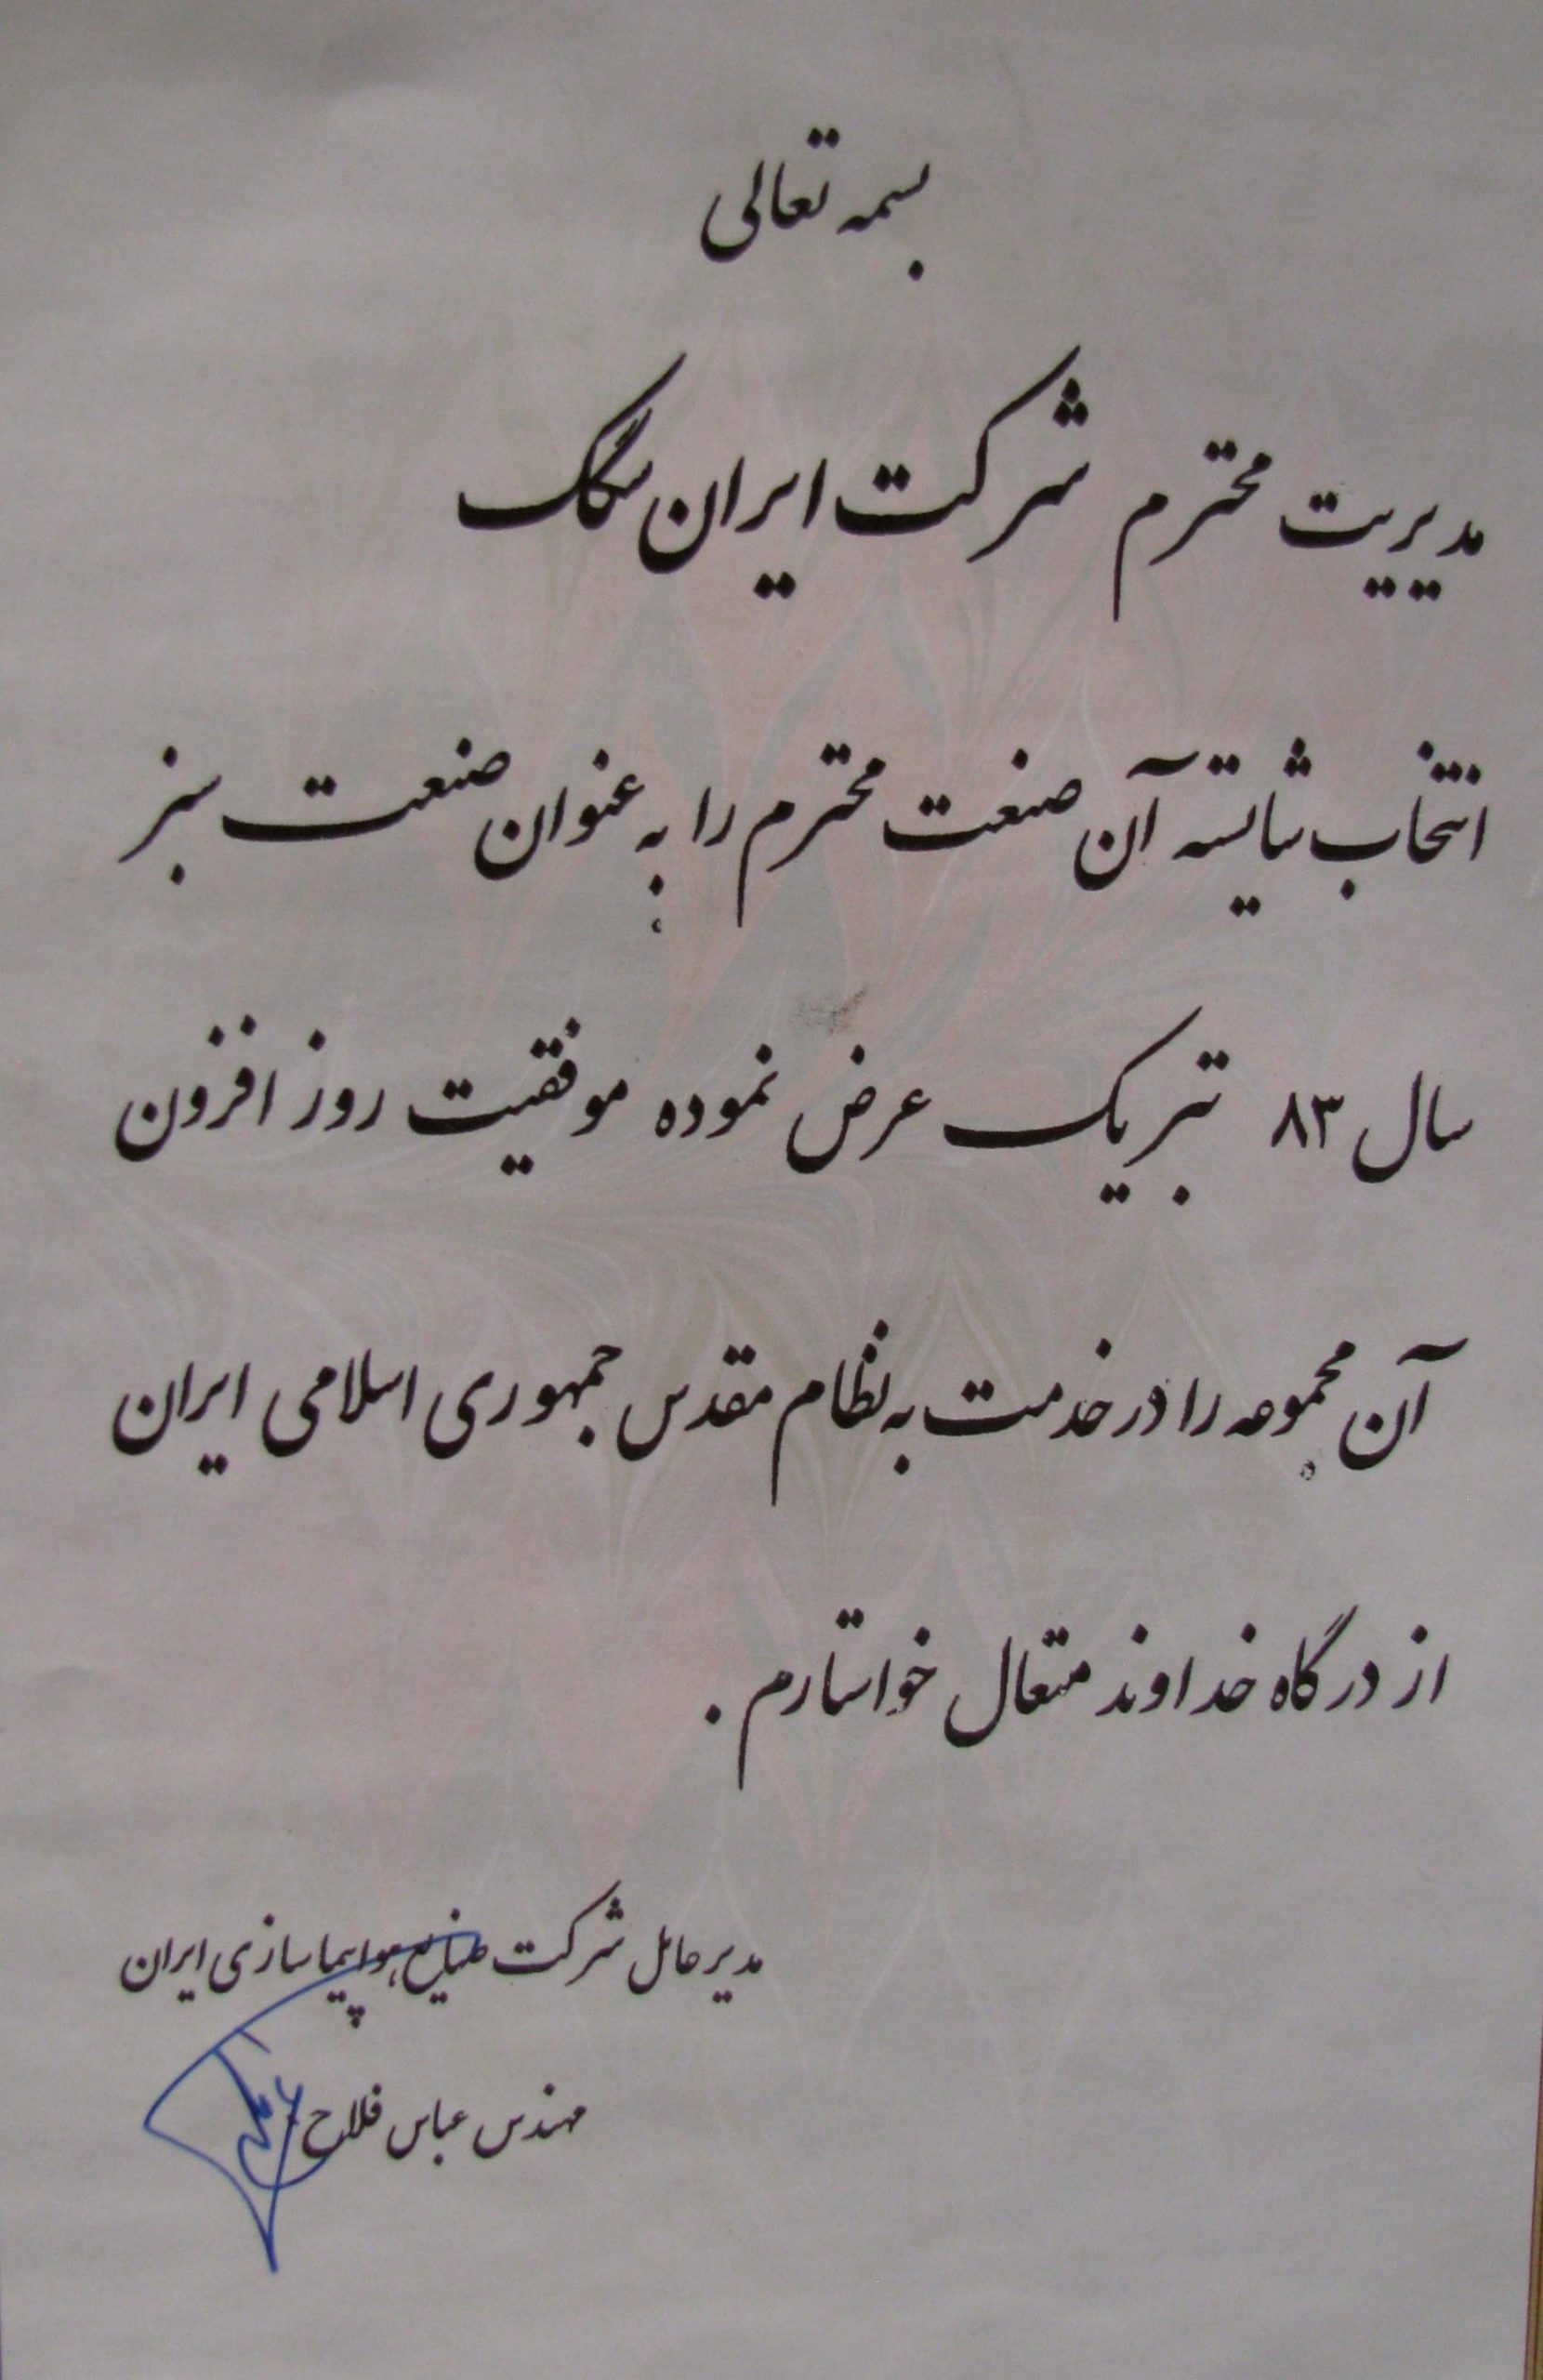 بسمه تعالی
مدیریت محترم شرکت ایران سگک
انتخاب شایسته آن صنعت محترم را به عنوان صنعت سبز
سال ۸۳ تبریک عرض نموده موفقیت روز افزون
آن مجموعه را در خدمت به نظام مقدس جمهوری اسلامی ایران
از درگاه خداوند متعال خواستارم .
مدیر عامل شرکت صنایع هواپیما سازی ایران
مهندس عباس فلاح